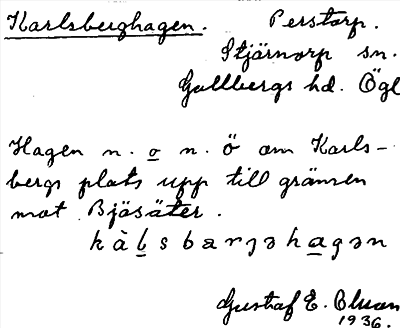 Karlsberghagen. Perstorp.
Stjärnorp sn.
Gullbergs hd. Ögl
Hagen n. o n. ö om Karls-
bergs plats upp till gränsen
mot Bjäsäter.
kàḻsbarjəha̲gən
Gustaf E. Bluan
1936.